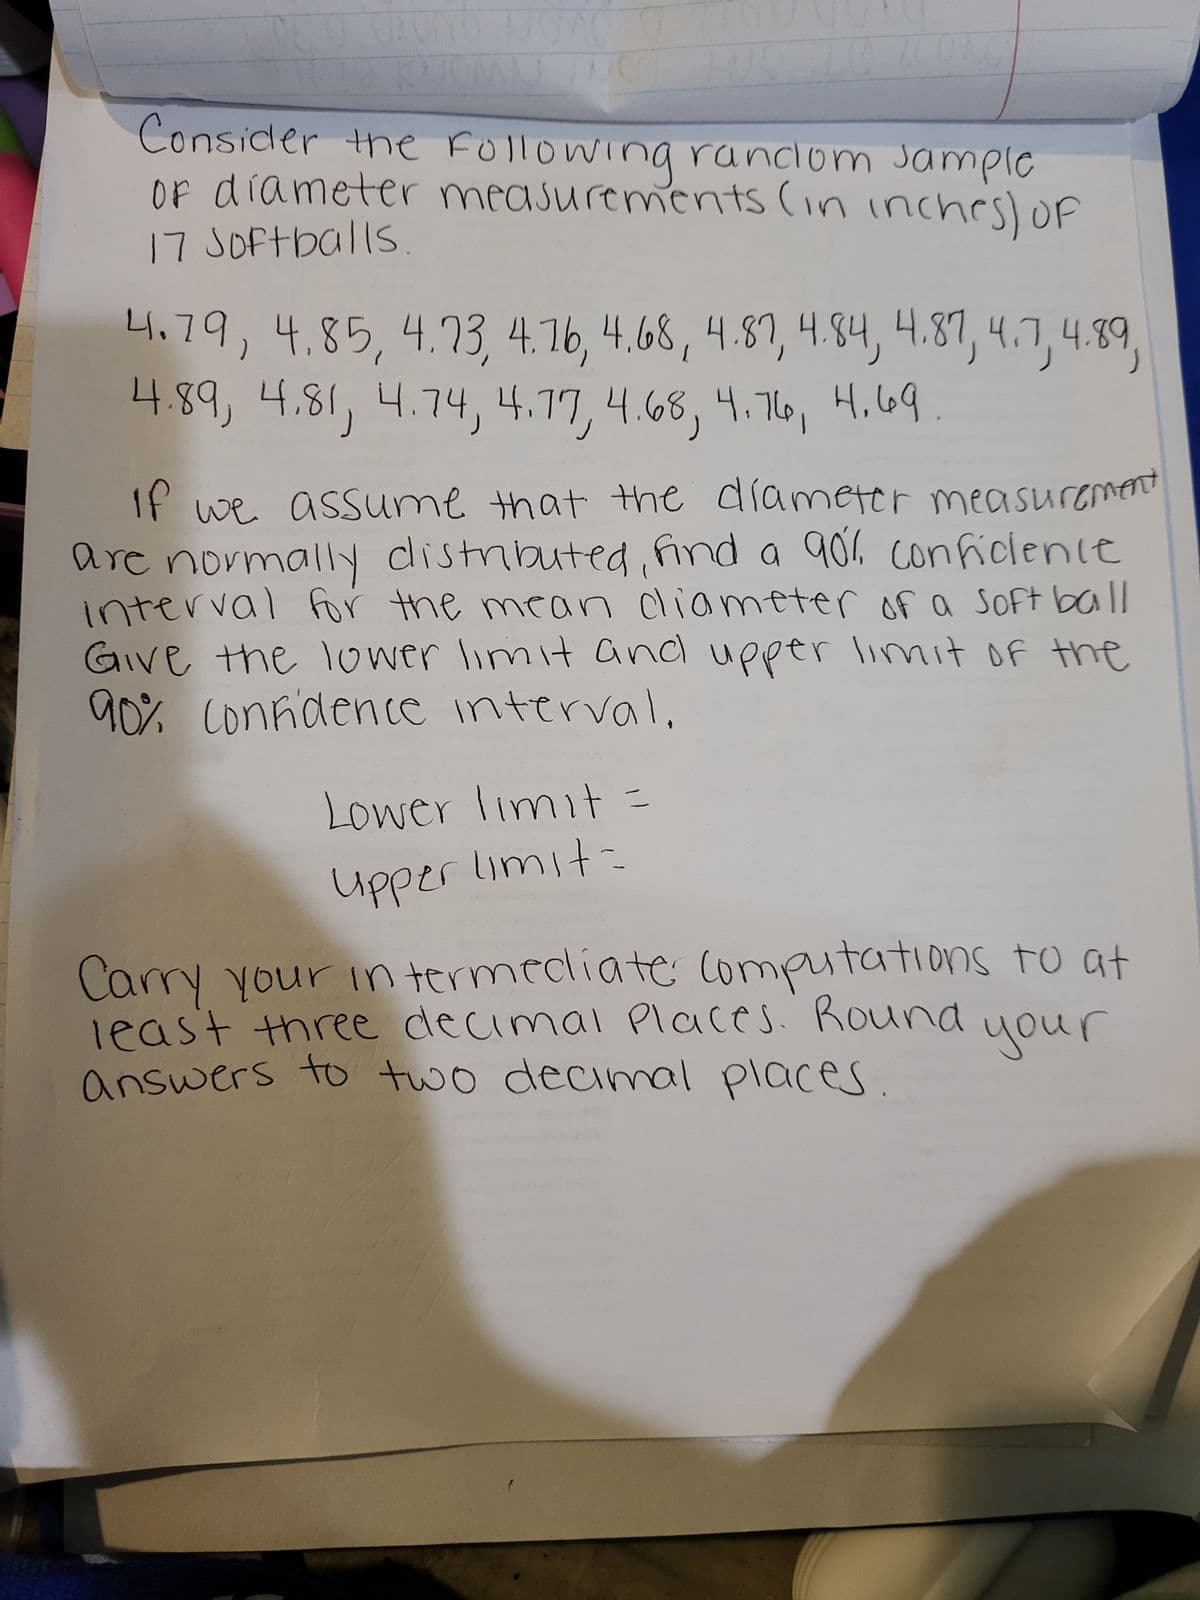 Consider the Following random sample
OF diameter measurements (in inches) OF
17 Softballs.
4.79, 4.85, 4.73, 4.76, 4.68, 4.87, 4.84, 4.87, 4.7, 4.89,
4.89, 4.81, 4.74, 4.77, 4.68, 4.76, 4.69.
If we assume that the diameter measurement
are normally distributed, find a 90% confidence
interval for the mean diameter of a Softball
Give the lower limit and upper limit of the
90% confidence interval.
Lower limit =
upper limit =
Carry your intermediate computations to at
least three decimal places. Round your
answers to two decimal places.